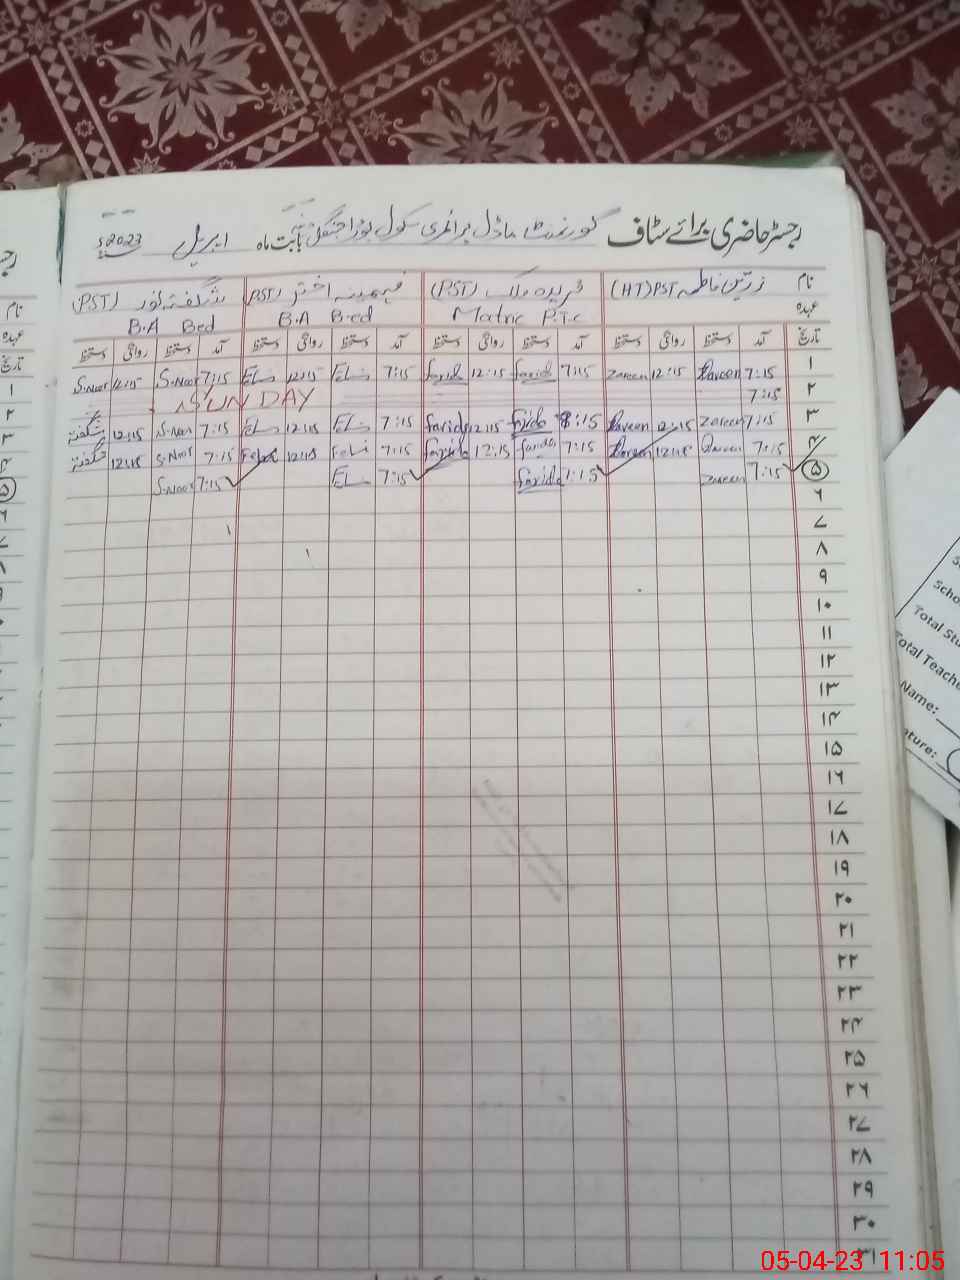 رجسٹر حاضری برائے سٹاف گورنمنٹ ماڈل پرائمری سکول بابت ماہ اپریل 2023ء
نام زرین فاطمہ PST(HT) فریدہ ملک (PST) فہمینہ اختر (PST) شگفتہ نور (PST)
عہدہ Matric P.T.C B.A B.ed B.A Bed
تاریخ آمد دستخط روانگی دستخط آمد دستخط روانگی دستخط آمد دستخط روانگی دستخط آمد دستخط روانگی دستخط
۱ 7:15 Zareen 12:15 Zareen 7:15 Farida 12:15 Farida 7:15 12:15 7:15 S.Noor 12:15 S.Noor
۲ 7:15 SUNDAY
۳ 7:15 Zareen 12:15 Zareen 8:15 Farida 12:15 Farida 7:15 12:15 7:15 S.Noor 12:15 شگفتہ
۴ 7:15 Zareen 12:15 Zareen 7:15 Farida 12:15 Farida 7:15 12:15 7:15 S.Noor 12:15 شگفتہ
۵ 7:15 Zareen 7:15 Farida 7:15 7:15 S.Noor
۶
۷
۸
۹
۱۰
۱۱
۱۲
۱۳
۱۴
۱۵
۱۶
۱۷
۱۸
۱۹
۲۰
۲۱
۲۲
۲۳
۲۴
۲۵
۲۶
۲۷
۲۸
۲۹
۳۰
۳۱
Total Stu
Total Teache
Name:
ature:
05-04-23 11:05